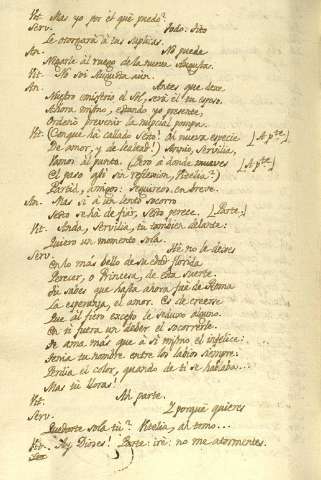 Vit. Mas yo por él qué puedo?
Serv. Todo. Sito
Le otorgará à tus suplicas.
An. No puede
Negarla al ruego de la nueva Augusta.
Vit. No soi Augusta aun.
An. Antes que deve
Nuestro emisferio el Sol, será él tu esposo.
Ahora mismo, estando yo presente,
Ordenó prevenir la nupcial pompa.
Vit. (Conqué ha callado Sexto! al nueva especie [A pte.]
De amor, y de lealtad!) Annio, Servilia,
Vamos al punto. (Pero à donde mueves [A pte.]
El paso asi sin reflexion, Vitelia?)
Partid, amigos: seguireos en breve.
An. Mas si à un lento socorro
Sexto se há de fiar, Sexto perece. [Parte.]
Vit. Anda, Servilia, tu tambien delante:
Quiero un momento sola.
Serv. Hé no le dexes
En lo más bello de su edad florida
Perecer, o Princesa, de esta suerte.
Tu sabes que hasta ahora fué de Roma
La esperanza, el amor. Es de creerse
Que al fiero exceso le seduxo alguno.
En ti fuera un deber el socorrerle.
Te ama más que à si mismo el infelice:
Tenia tu nombre entre los labios siempre:
Perdia el color, quando de ti se hablaba...
Mas tú lloras!
Vit. Ah parte.
Serv. Y porqué quieres
Quedarte sola tú? Vitelia, ah temo...
Vit. Ay Dioses! Parte: iré: no me atormentes.